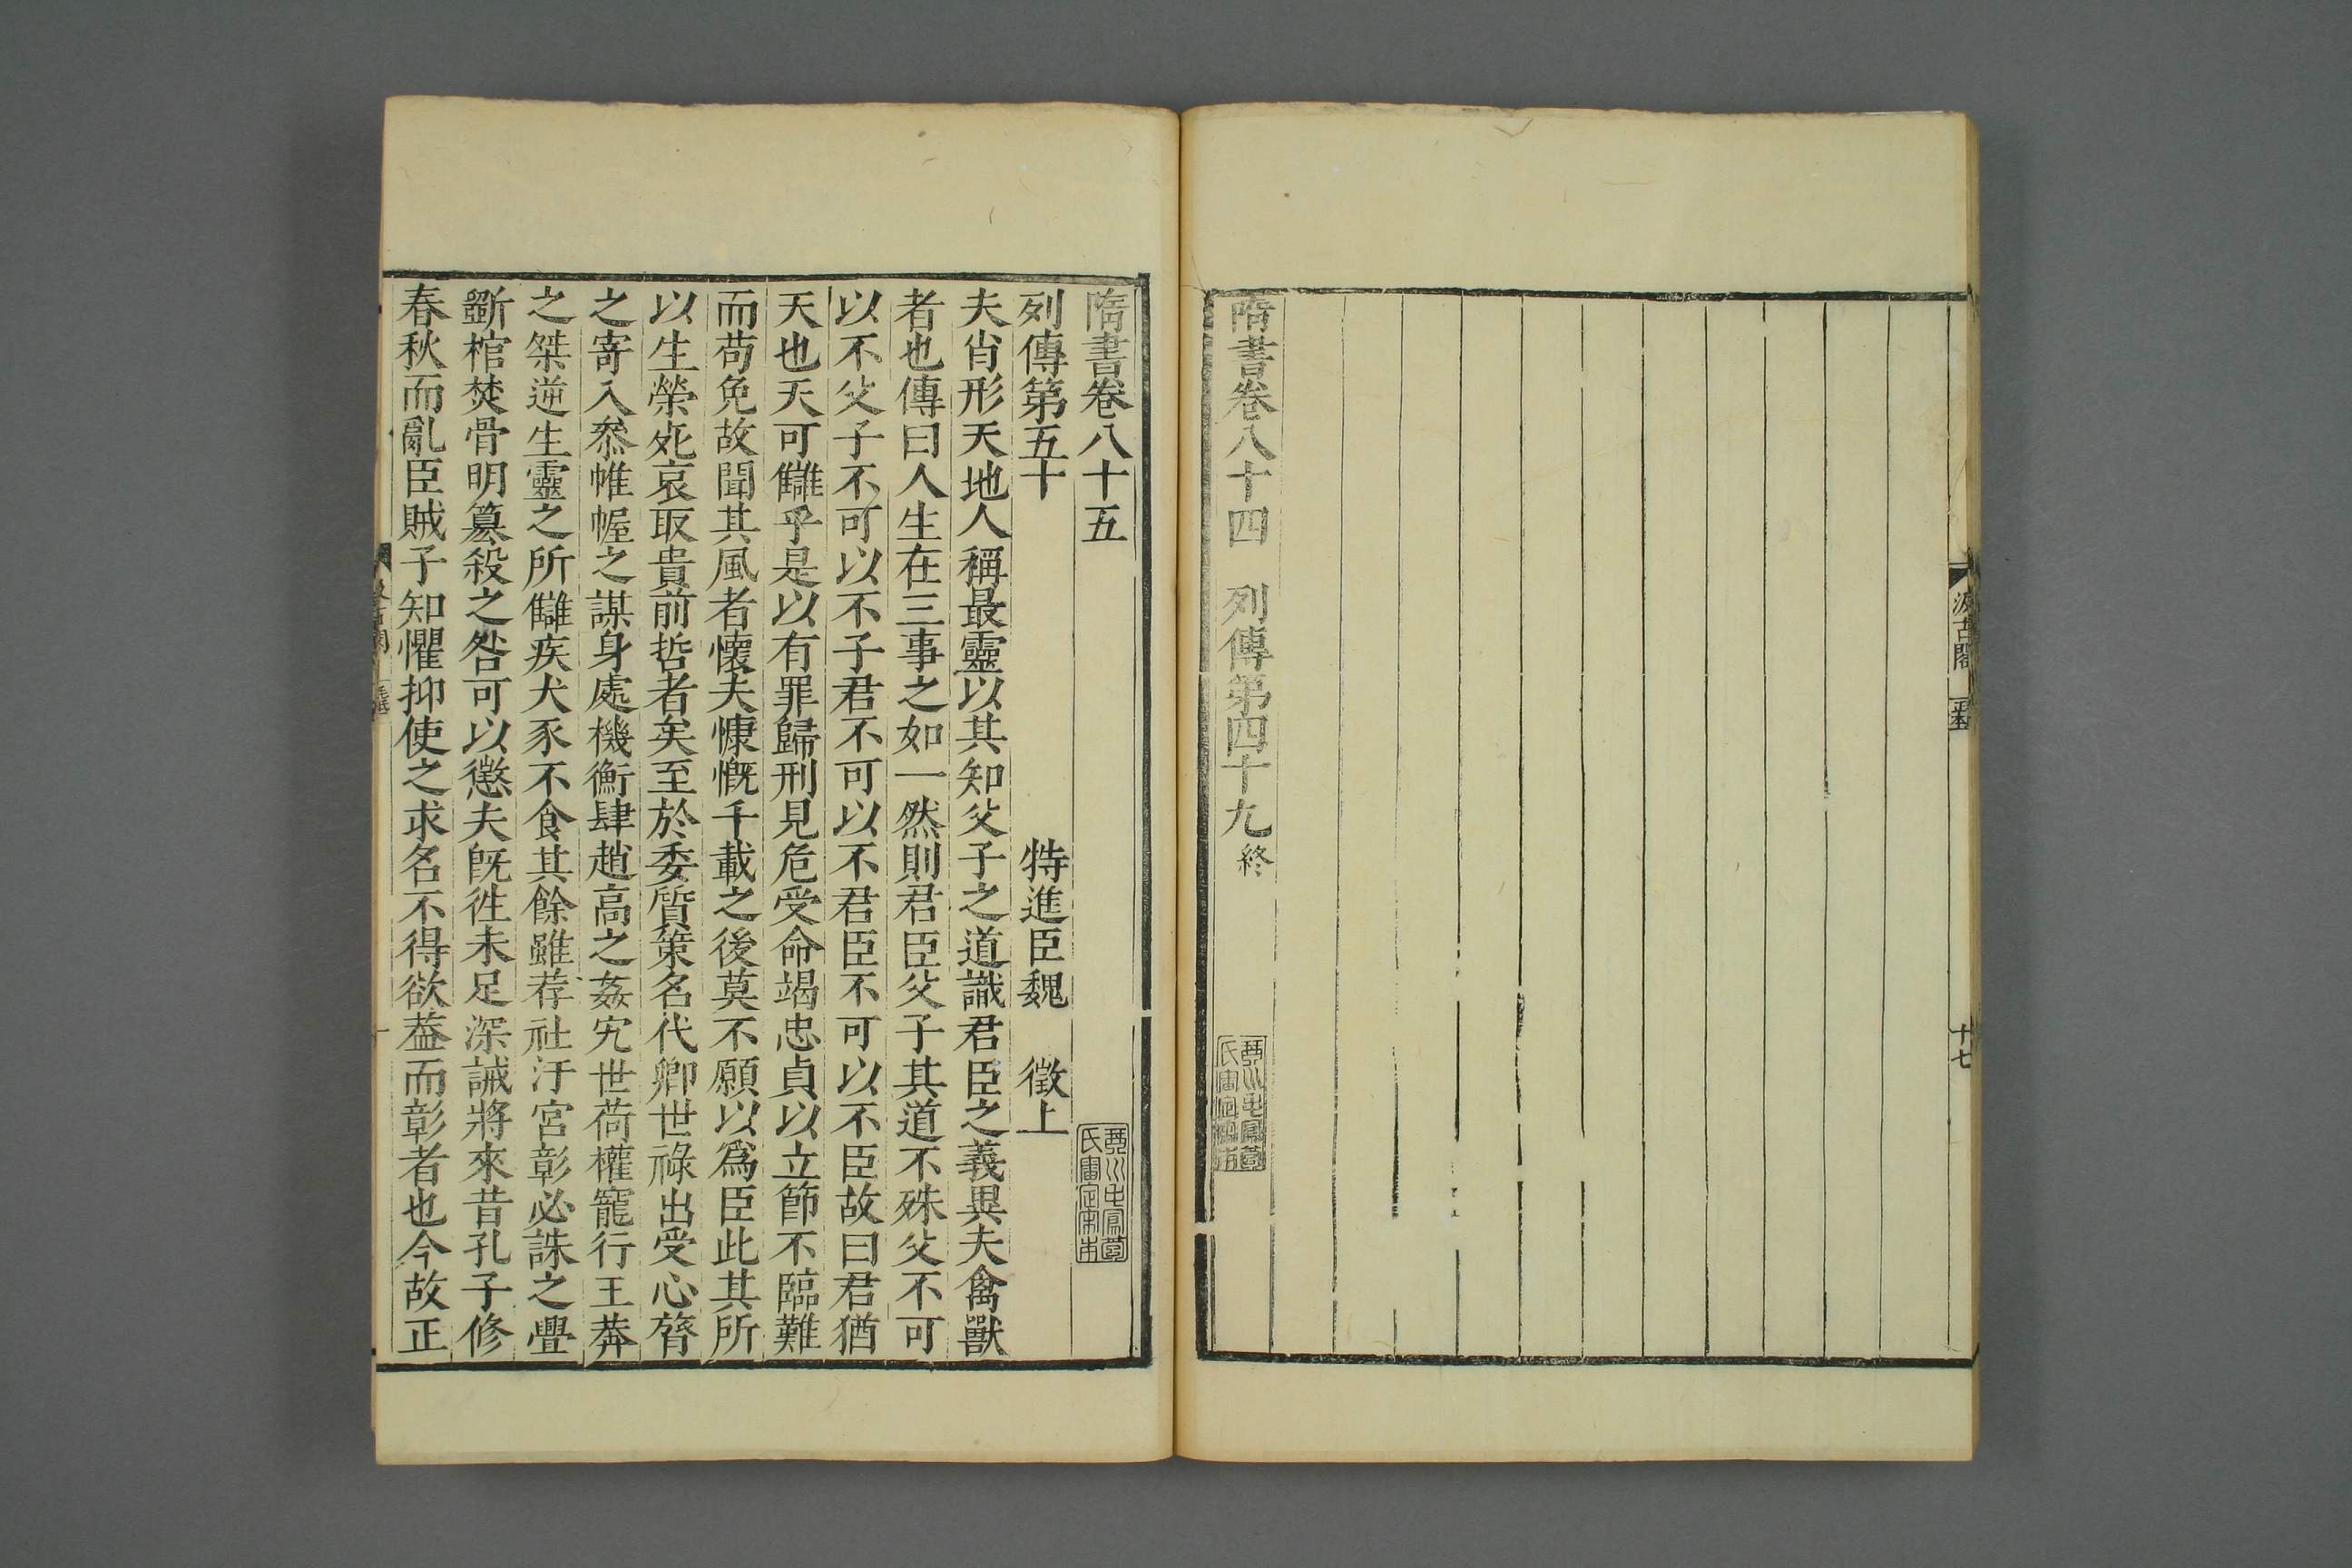 汲古閣
十七
隋書卷八十四　列傳第四十九終
隋書卷八十五
琴川毛鳳苞
氏審定宋本
列傳第五十　特進臣魏　徵上
夫肖形天地人稱最靈以其知父子之道識君臣之義異夫禽獸
者也傳曰人生在三事之如一然則君臣父子其道不殊父不可
以不父子不可以不子君不可以不君臣不可以不臣故曰君猶
天也天可讎乎是以有罪歸刑見危受命竭忠貞以立節不臨難
而苟免故聞其風者懷夫慷慨千載之後莫不願以爲臣此其所
以生榮死哀取貴前哲者矣至於委質策名代卿世祿出受心膂
之寄入叅帷幄之謀身處機衡肆趙高之姦宄世荷權寵行王莽
之桀逆生靈之所讎疾犬豕不食其餘雖荐社汙宮彰必誅之釁
斵棺焚骨明篡殺之咎可以懲夫旣徃未足深誡將來昔孔子修
春秋而亂臣賊子知懼抑使之求名不得欲葢而彰者也今故正